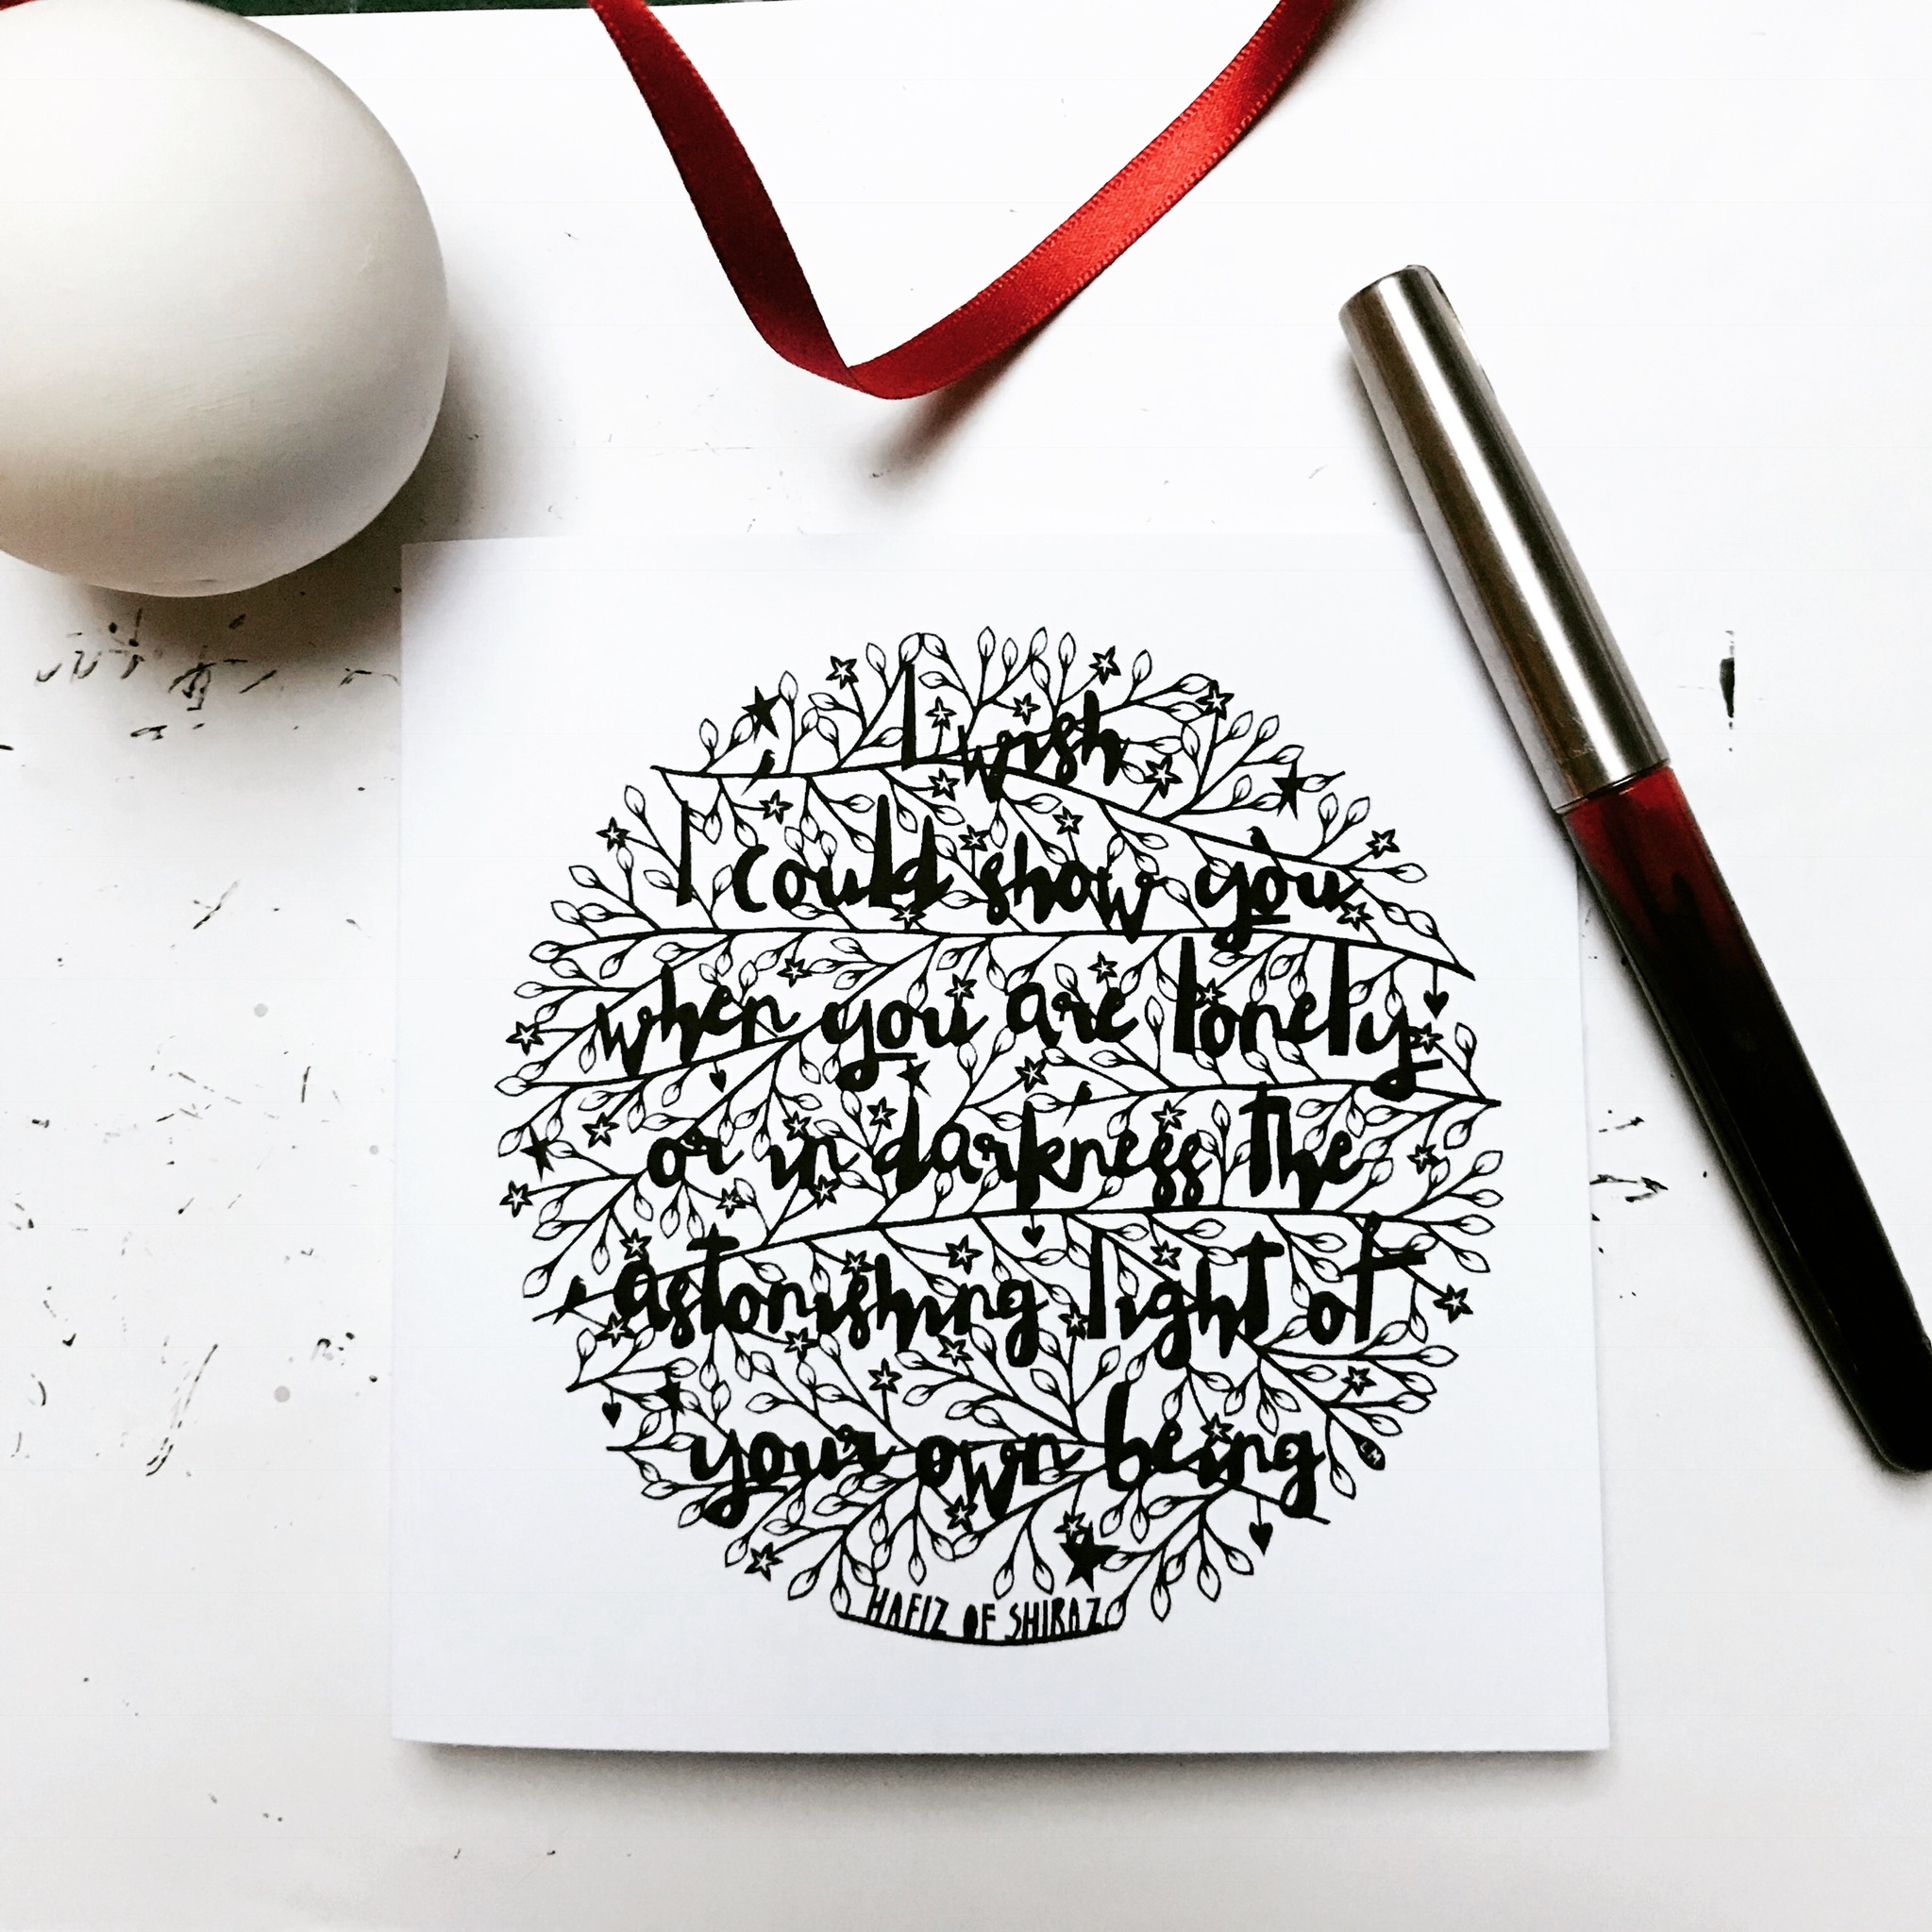 I wish
I could show you
when you are lonely
or in darkness the
astonishing light of
your own being
HAFIZ OF SHIRAZ